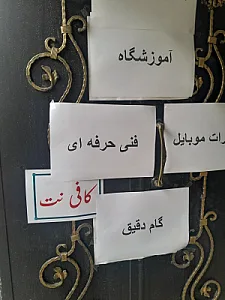 آموزشگاه
فنی حرفه ای
رات موبایل
کافی نت
گام دقیق